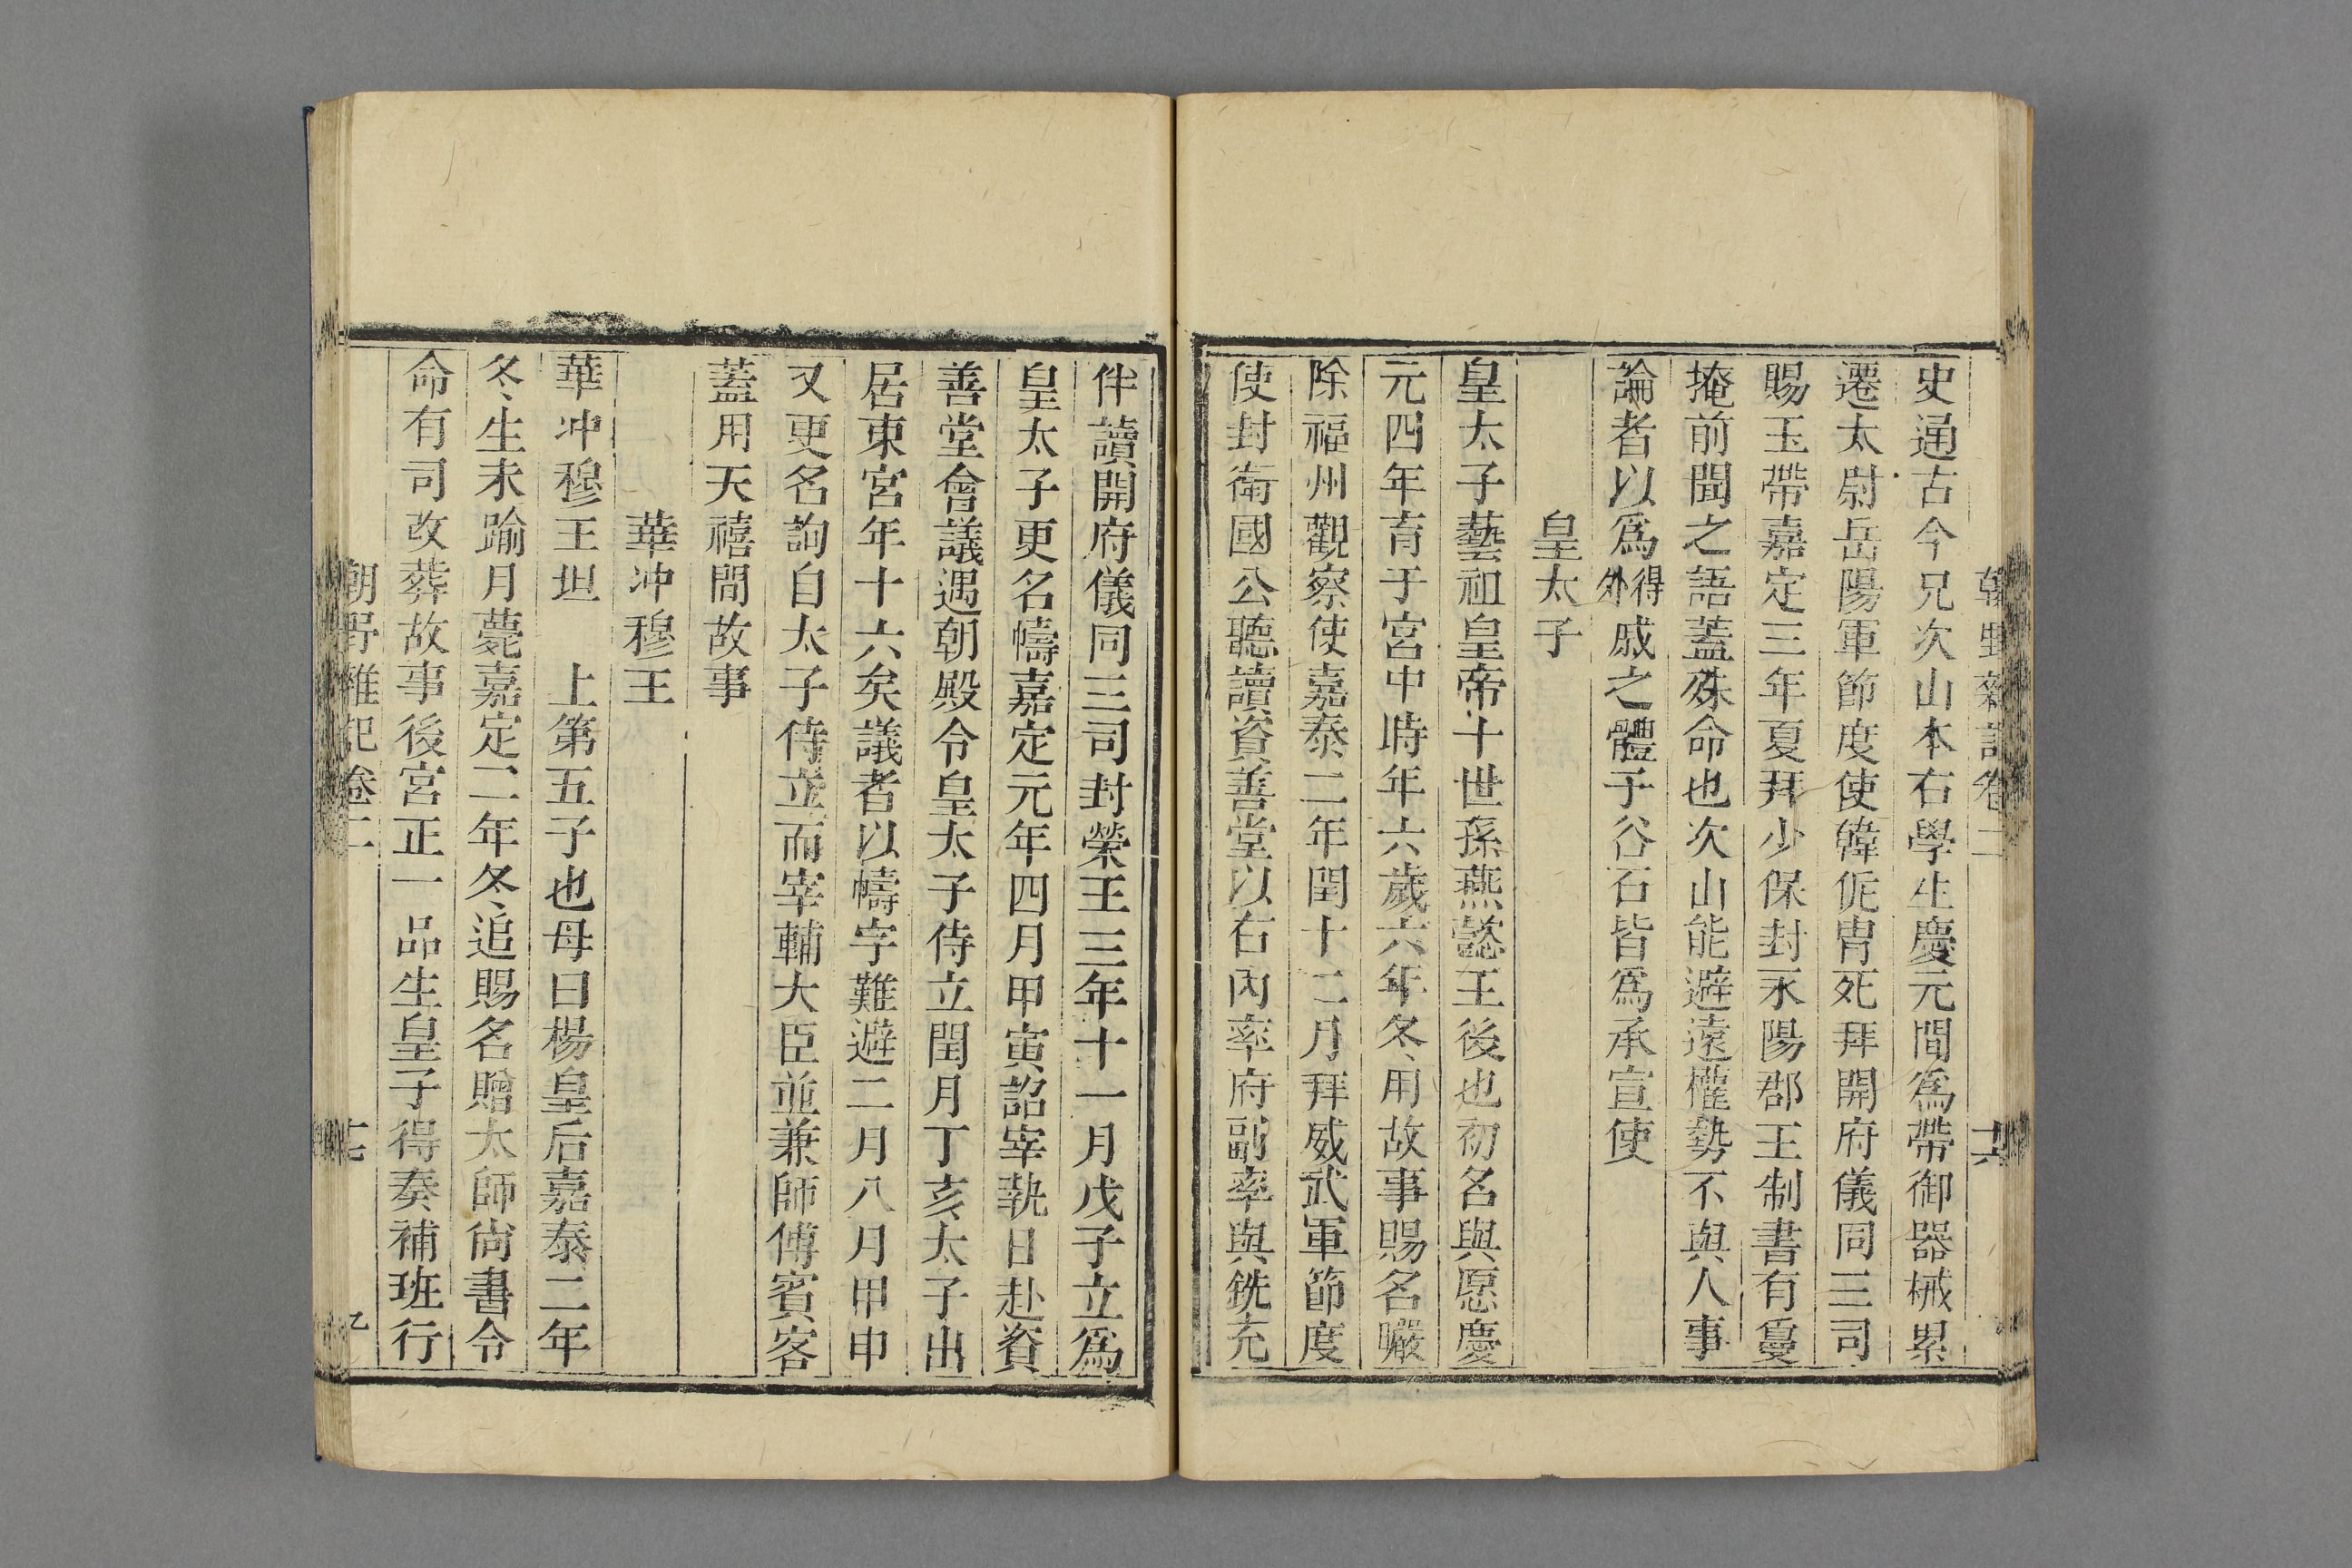 朝野雜記卷二 十六
史通古今兄次山本右學生慶元間爲帶御器械累
遷太尉岳陽軍節度使韓侂冑死拜開府儀同三司
賜玉帶嘉定三年夏拜少保封永陽郡王制書有曼
掩前聞之語蓋殊命也次山能避遠權勢不與人事
論者以爲得外戚之體子谷石皆爲承宣使
皇太子
皇太子藝祖皇帝十世孫燕懿王後也初名與愿慶
元四年育于宮中時年六歲六年冬用故事賜名曮
除福州觀察使嘉泰二年閏十二月拜威武軍節度
使封衛國公聽讀資善堂以右內率府副率與銑充
伴讀開府儀同三司封榮王三年十一月戊子立爲
皇太子更名幬嘉定元年四月甲寅詔宰執日赴資
善堂會議遇朝殿令皇太子侍立閏月丁亥太子出
居東宮年十六矣議者以幬字難避二月八月甲申
又更名詢自太子侍立而宰輔大臣並兼師傅賓客
蓋用天禧間故事
華沖穆王
華沖穆王坦 上第五子也母曰楊皇后嘉泰二年
冬生未踰月薨嘉定二年冬追賜名贈太師尚書令
命有司改葬故事後宮正一品生皇子得奏補班行
朝野雜記卷二 十七